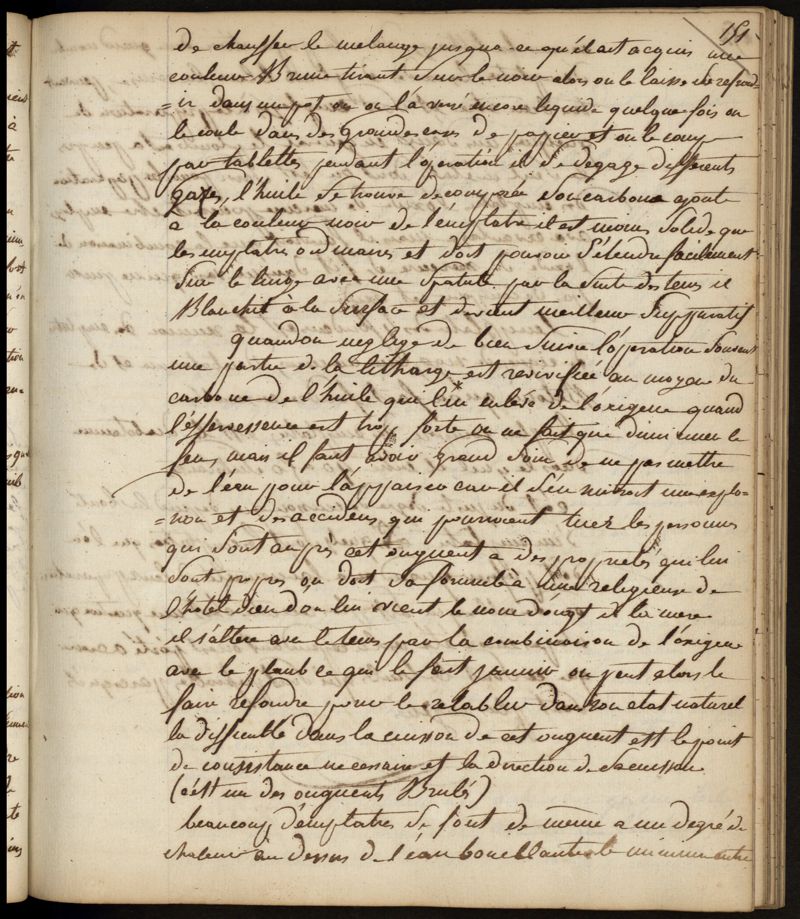 151
de chauffer le melange jusqua ce qu'il ait acquis une
couleur Brune tirant sur le noir alors on le laisse refroid-
=ir dans un pot ou on l'a versé encore liquide quelque fois on
le coule dans des grandes caisses de papier et on le coupe
par tablettes pendant l'opération il se degage differents
gazes, l'huile se trouve decomposée son carbone ajoute
a la couleur noir de l'emplatre il est moins solide que
les emplatres ordinaires et doit pouvoir s'étendre facilement
sur le linge avec une spatule par la suite des tems il
Blanchit à la surface et devient meilleur suppuratif
quand on neglige de bien suivre l'operation souvent
une partie de la litharge est revivifiée au moyen du
carbone de l'huile qui lui enleve de l'oxigene quand
l'effervessence est trop forte on ne fait que diminuer le
feu, mais il faut avoir grand soin de ne pas mettre
de l'eau pour l'appaiser car il s'en suivroit une explo-
=sion et des accidens qui pourroient tuer les personnes
qui sont auprés cet onguent a des proprietés qui lui
sont propres on doit sa formule à une religieuse de
l'hotel Dieu d'ou lui vient le nom d'ongt de la mere
il s'altere avec le tems par la combinaison de l'oxigene
avec le plomb ce qui le fait jaunir on peut alors le
faire refondre pour le retablir dans son etat naturel
la difficulté dans la cuisson de cet onguent est le point
de consistance necessaire et la direction de sa cuisson
(c'est un des onguents Brulés)
beaucoup d'emplatres se font de même a un degré de
chaleur au dessus de l'eau bouillante le minium entre